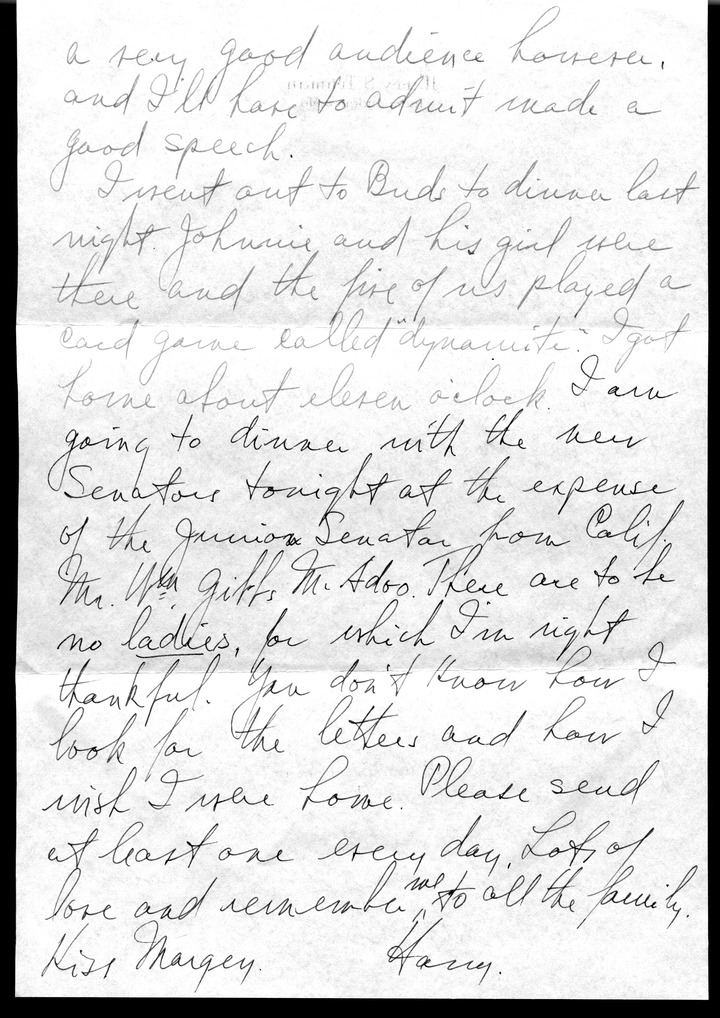 a very good audience however,
and I'll have to admit made a
good speech.
I went out to Buds to dinner last
night. Johnnie and his girl were
there and the five of us played a
card game called "dynamite". I got
home about eleven o'clock. I am
going to dinner with the new
Senators tonight at the expense
of the Junior Senator from Calif.
Mr. Wm. Gibbs McAdoo. There are to be
no ladies, for which I'm right
thankful. You don't know how I
look for the letters and how I
wish I were home. Please send
at least one every day. Lots of
love and remember me to all the family.
Kiss Margey. Harry.